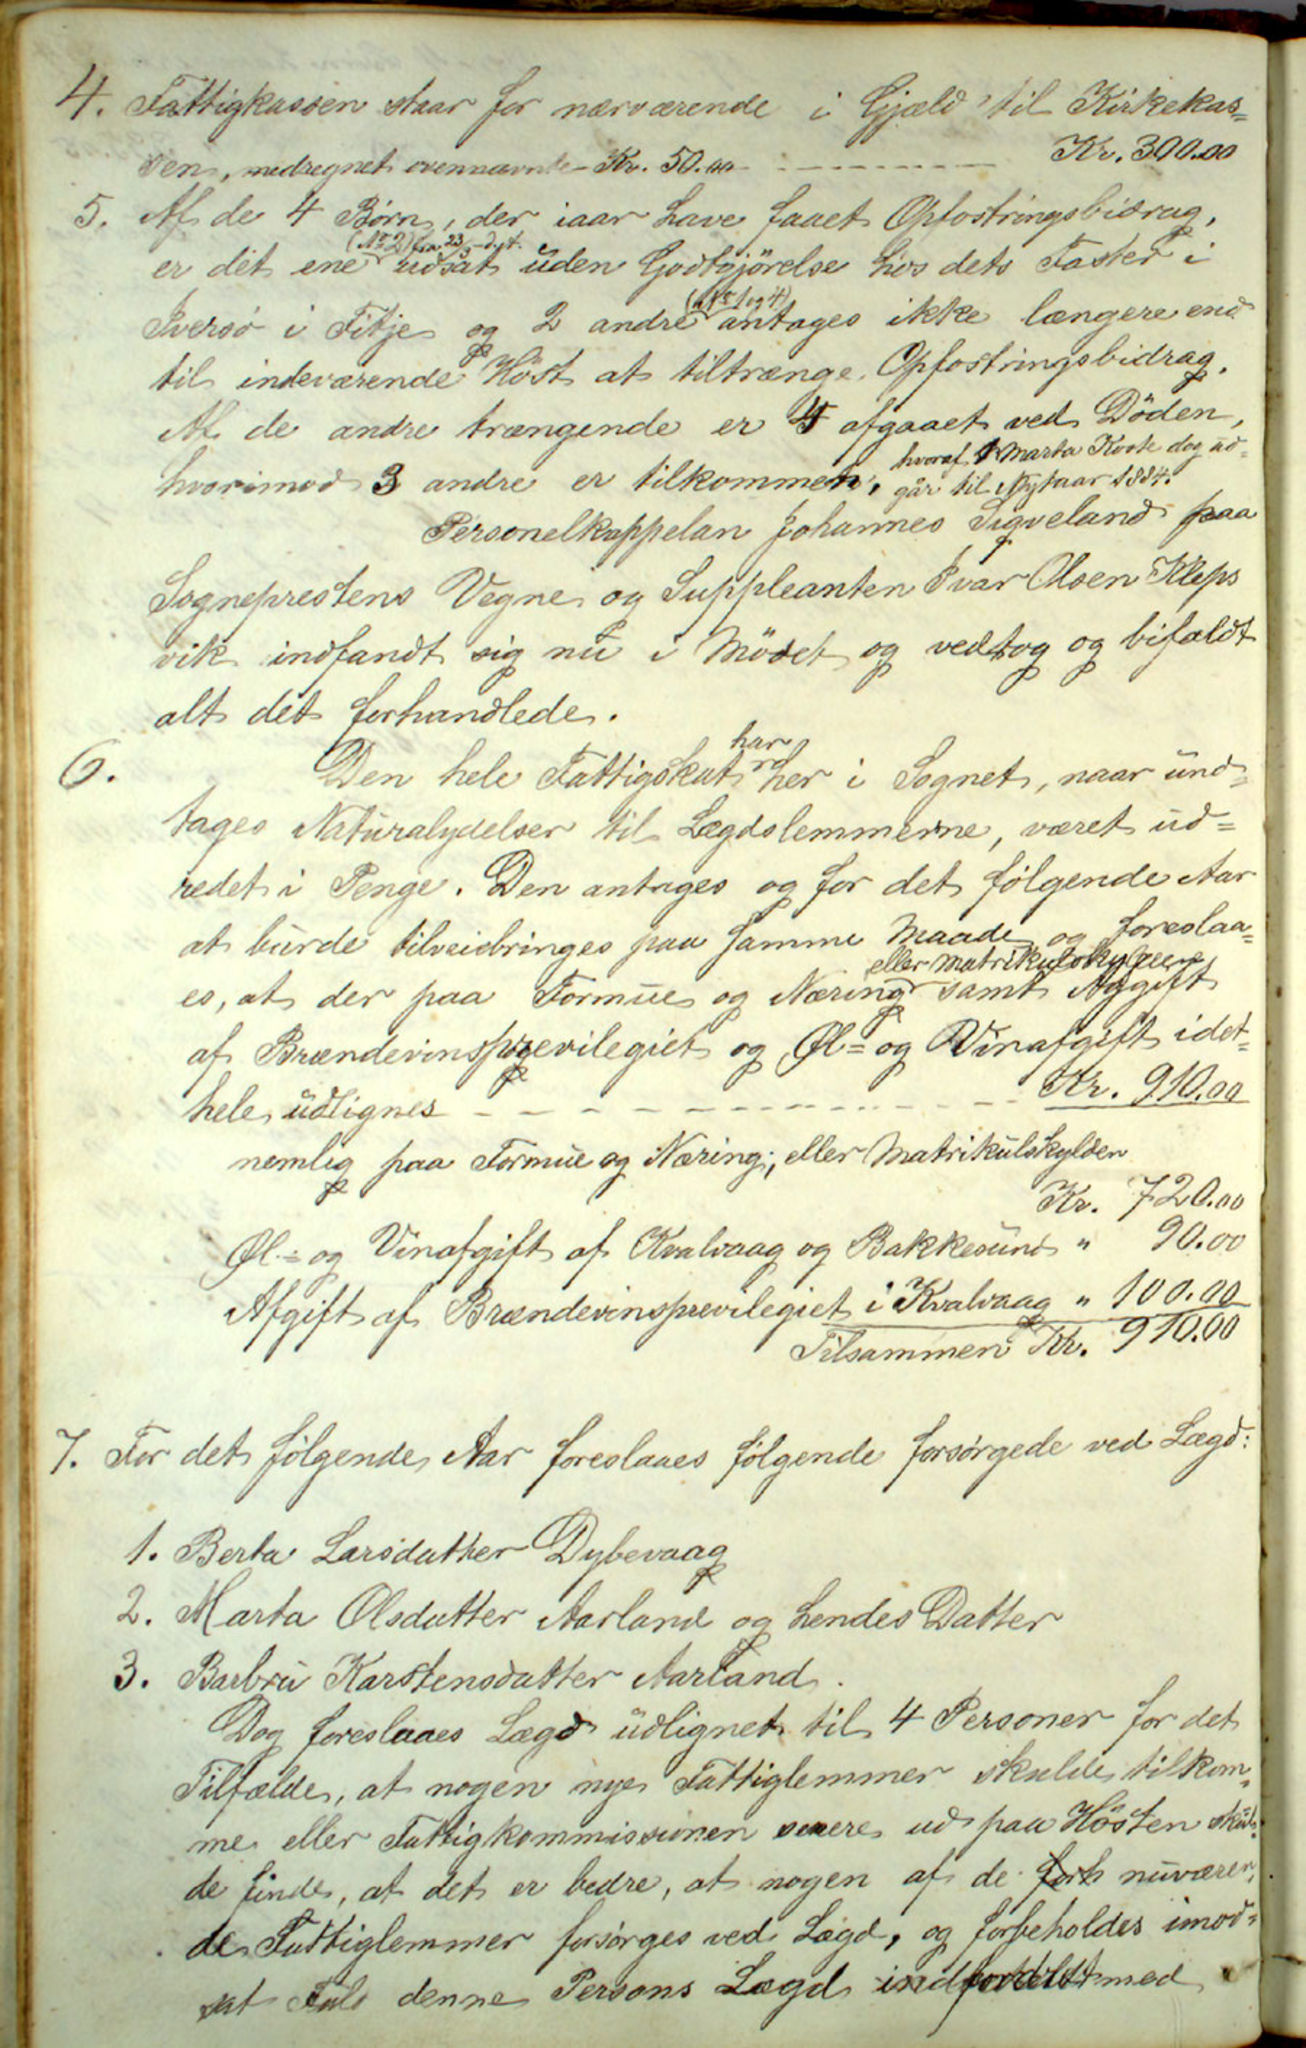 4. Fattigkassen staar for nærværende i Gjæld til Kirkekas=
sen, medregnet ovennævnte Kr. 50.00 - - - - - - - Kr. 300.00
5. Af de 4 Børn, der iaar have faaet Opfostringsbidrag,
(No 2) fra 23/5 d. A.
er det ene udsat uden Godtgjörelse hos dets Faster i
(No 1 og 4)
Iversö i Fitje og 2 andre antages ikke længere end
til indeværende Höst at tiltrænge Opfostringsbidrag.
Af de andre trængende er 4 afgaaet ved Döden,
hvoraf 1 Marta Koste dog ud=
hvorimod 3 andre er tilkommen, går til Nytaar 1884.
Personelkappelan Johannes Sigveland paa
Sogneprestens Vegne og Suppleanten Ivar Olsen Kleps
vik indfandt sig nu i Mödet og vedtog og bifaldt
alt det forhandlede.
har
6. Den hele Fattigskat her i Sognet, naar und=
tages Naturalydelser til Lægdslemmerne, været ud=
redet i Penge. Den antages og for det følgende Aar
at burde tilveiebringes paa samme Maade og foreslaa=
eller Matrikulskylden
es, at der paa Formue og Næring samt Afgift
af Brændevinsprevilegiet og Øl= og Vinafgift idet=
hele udlignes - - - - - - - - - - - - Kr. 910.00
nemlig paa Formue og Næring, eller Matrikulskylden
Kr. 720.00
Øl= og Vinafgift af Kvalvaag og Bakkesund " 90.00
Afgift af Brændevinsprevilegiet i Kvalvaag " 100.00
Tilsammen Kr. 910.00
7. For det følgende Aar foreslaaes følgende forsørgede ved Lægd:
1. Berta Larsdatter Dybevaag
2. Marta Olsdatter Aarland og hendes Datter
3. Barbru Karstensdatter Aarland.
Dog foreslaaes Lægd udlignet til 4 Personer for det
Tilfælde, at nogen nye Fattiglemmer skulde tilkom=
me eller Fattigkommissionen senere ud paa Hösten skul=
de finde, at det er bedre, at nogen af de nuværen=
de Fattiglemmer forsörges ved Lægd, og forbeholdes imod=
sat Fald denne Persons Lægd med